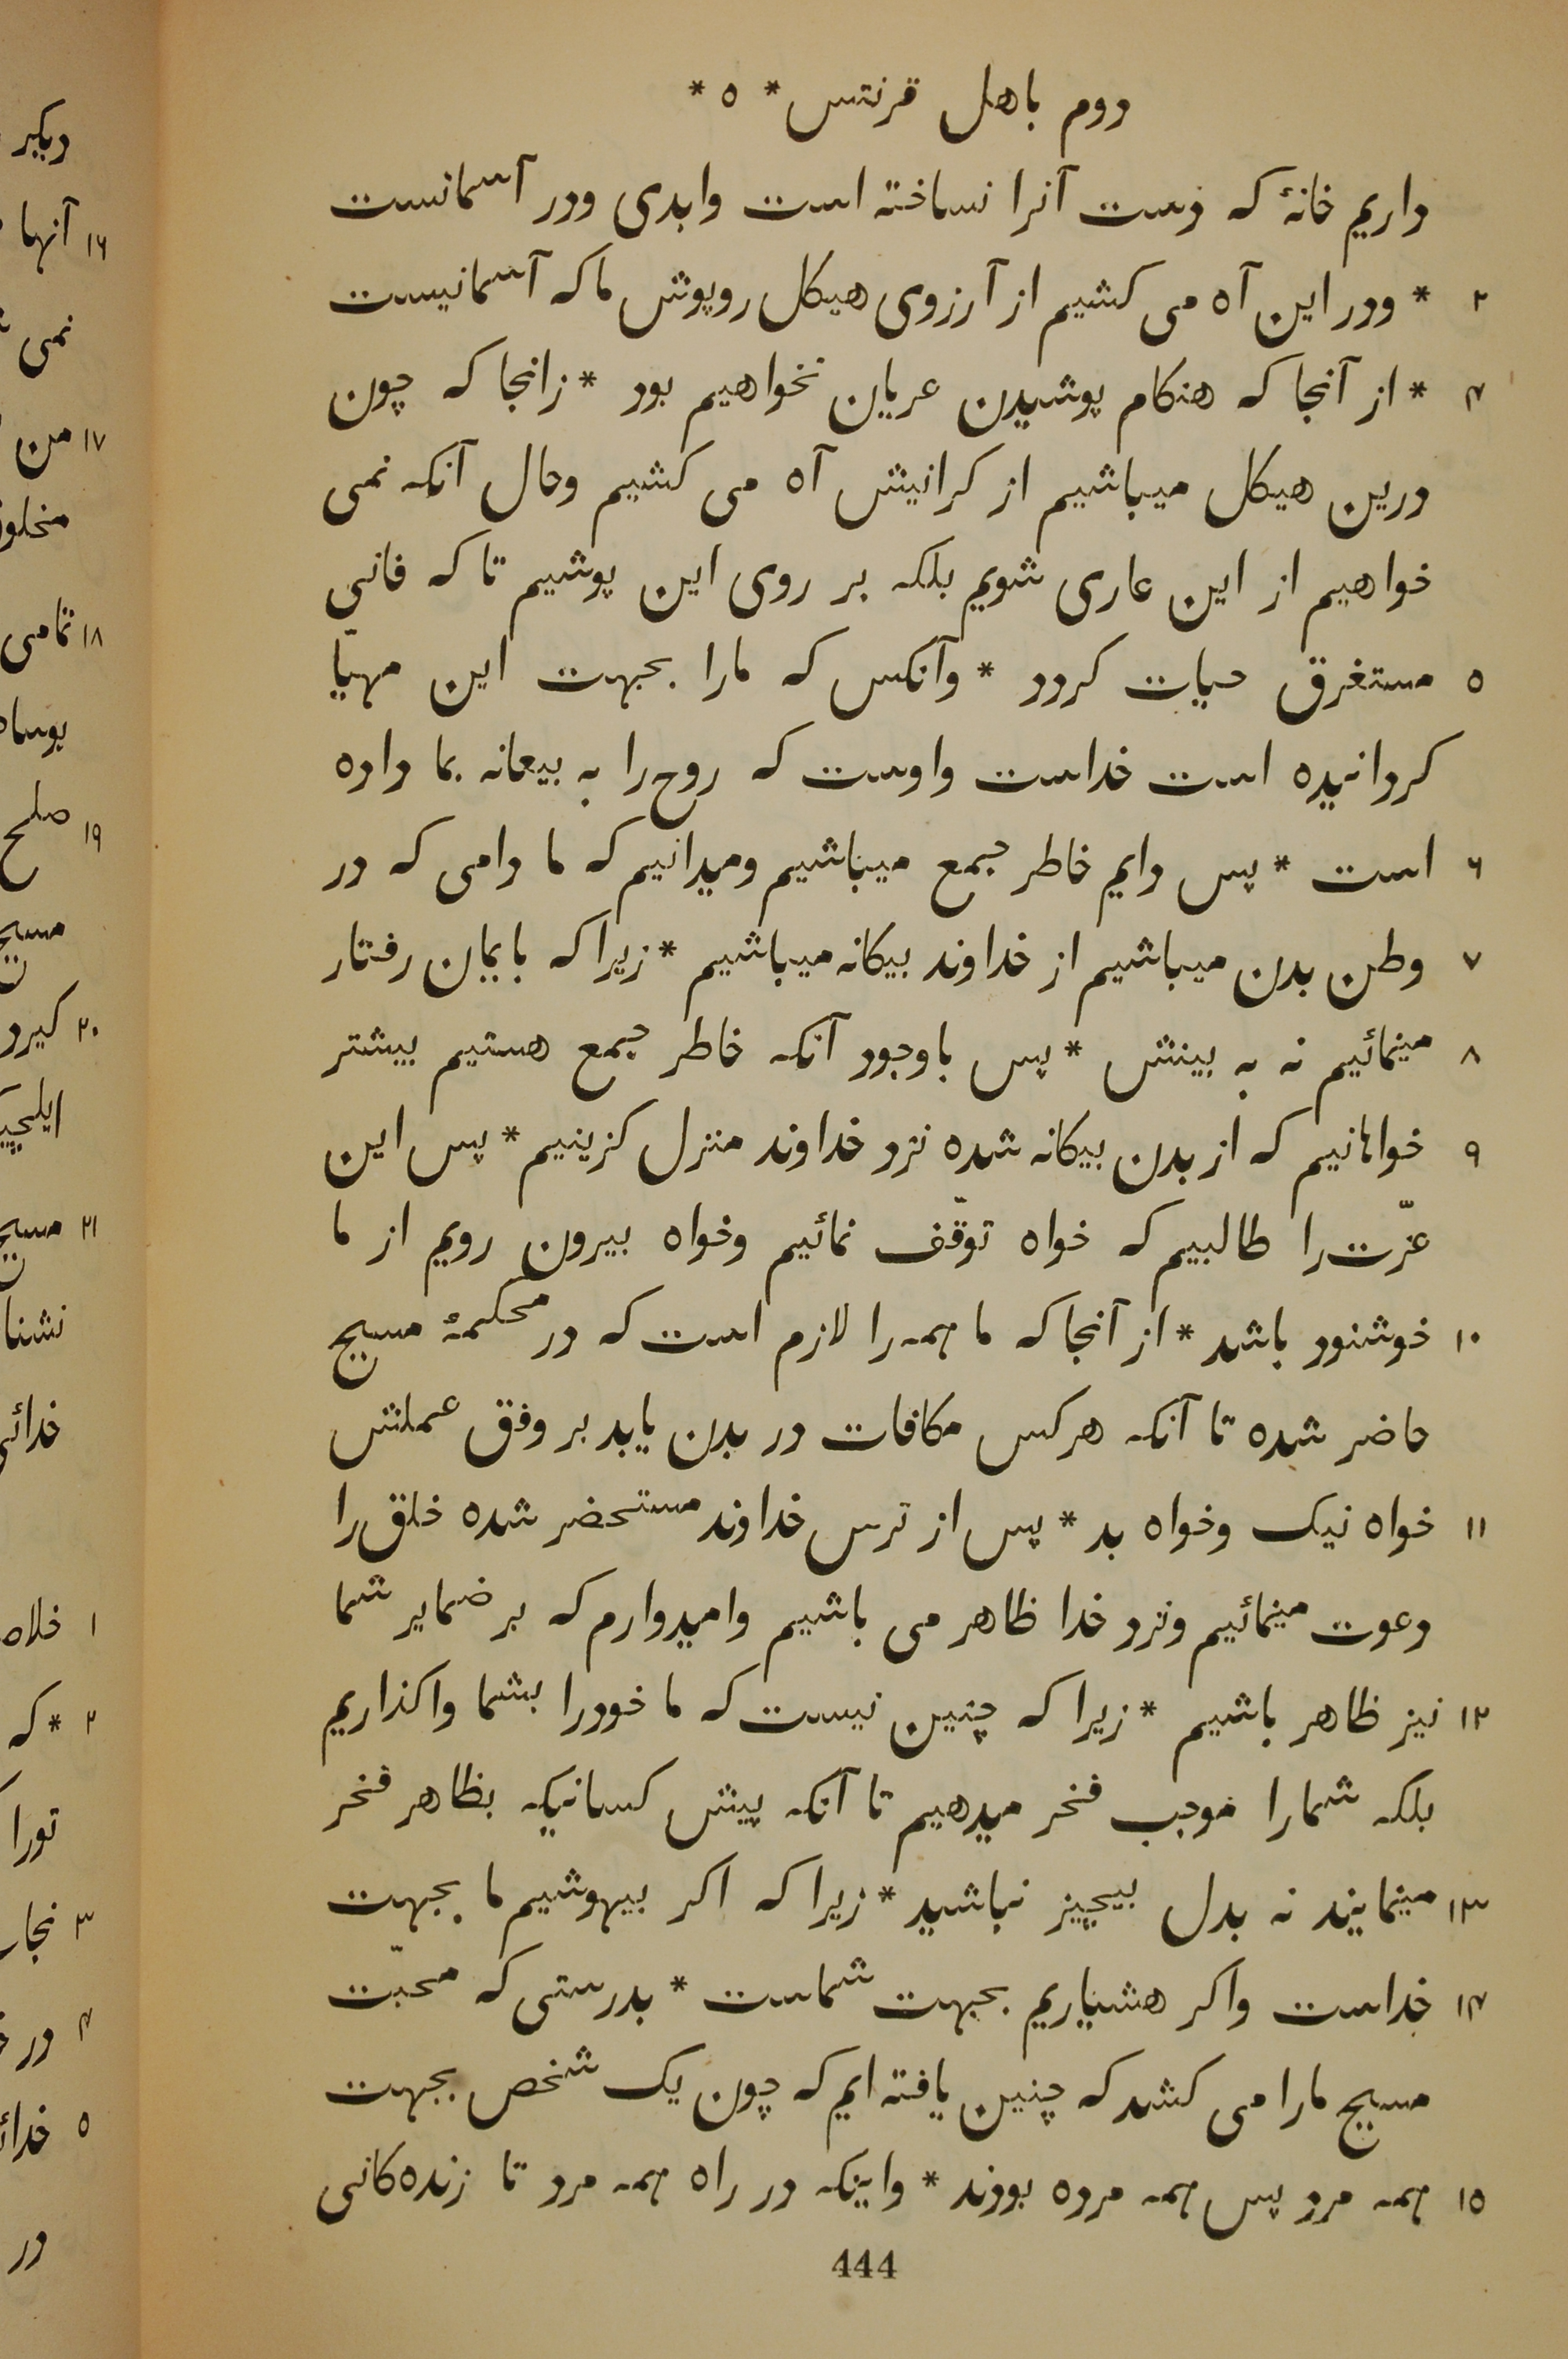 دوم باهل قرنتس * ۵ *
داریم خانهٔ که دست آنرا نساخته است وابدی ودر آسمانست
۲ * ودر این آه می کشیم از آرزوی هیکل روپوش ما که آسمانیست
۴ * از آنجا که هنکام پوشیدن عریان نخواهیم بود * زانجا که چون
درین هیکل میباشیم از کرانیش آه می کشیم وحال آنکه نمی
خواهیم از این عاری شویم بلکه بر روی این پوشیم تا که فانی
۵ مستغرق حیات کردد * وآنکس که مارا بجهت این مهیّا
کردانیده است خداست واوست که روح را به بیعانه بما داده
۶ است * پس دایم خاطر جمع میباشیم ومیدانیم که ما دامی که در
۷ وطن بدن میباشیم از خداوند بیکانه میباشیم * زیرا که بایمان رفتار
۸ مینمائیم نه به بینش * پس باوجود آنکه خاطر جمع هستیم بیشتر
۹ خواهانیم که از بدن بیکانه شده نزد خداوند منزل کزینیم * پس این
عزّت را طالبیم که خواه توقّف نمائیم وخواه بیرون رویم از ما
۱۰ خوشنود باشد * از آنجا که ما همه را لازم است که در محکمهٔ مسیح
حاضر شده تا آنکه هرکس مکافات در بدن یابد بر وفق عملش
۱۱ خواه نیک وخواه بد * پس از ترس خداوند مستحضر شده خلق را
دعوت مینمائیم ونزد خدا ظاهر می باشیم وامیدوارم که بر ضمایر شما
۱۲ نیز ظاهر باشیم * زیرا که چنین نیست که ما خودرا بشما واکذاریم
بلکه شمارا موجب فخر میدهیم تا آنکه پیش کسانیکه بظاهر فخر
۱۳ مینمایند نه بدل بیچیز نباشید * زیرا که اکر بیهوشیم ما بجهت
۱۴ خداست واکر هشیاریم بجهت شماست * بدرستی که محبّت
مسیح مارا می کشد که چنین یافته ایم که چون یک شخص بجهت
۱۵ همه مرد پس همه مرده بودند * واینکه در راه همه مرد تا زنده کانی
444
دیکر
۱۶ آنها
نمی
۱۷ من
۱۸ تمامی
۱۹ صلح
مسیح
۲۰ کیرد
۲۱ مسیح
۱
۲ * که
تورا
۳
۴ در
۵
در